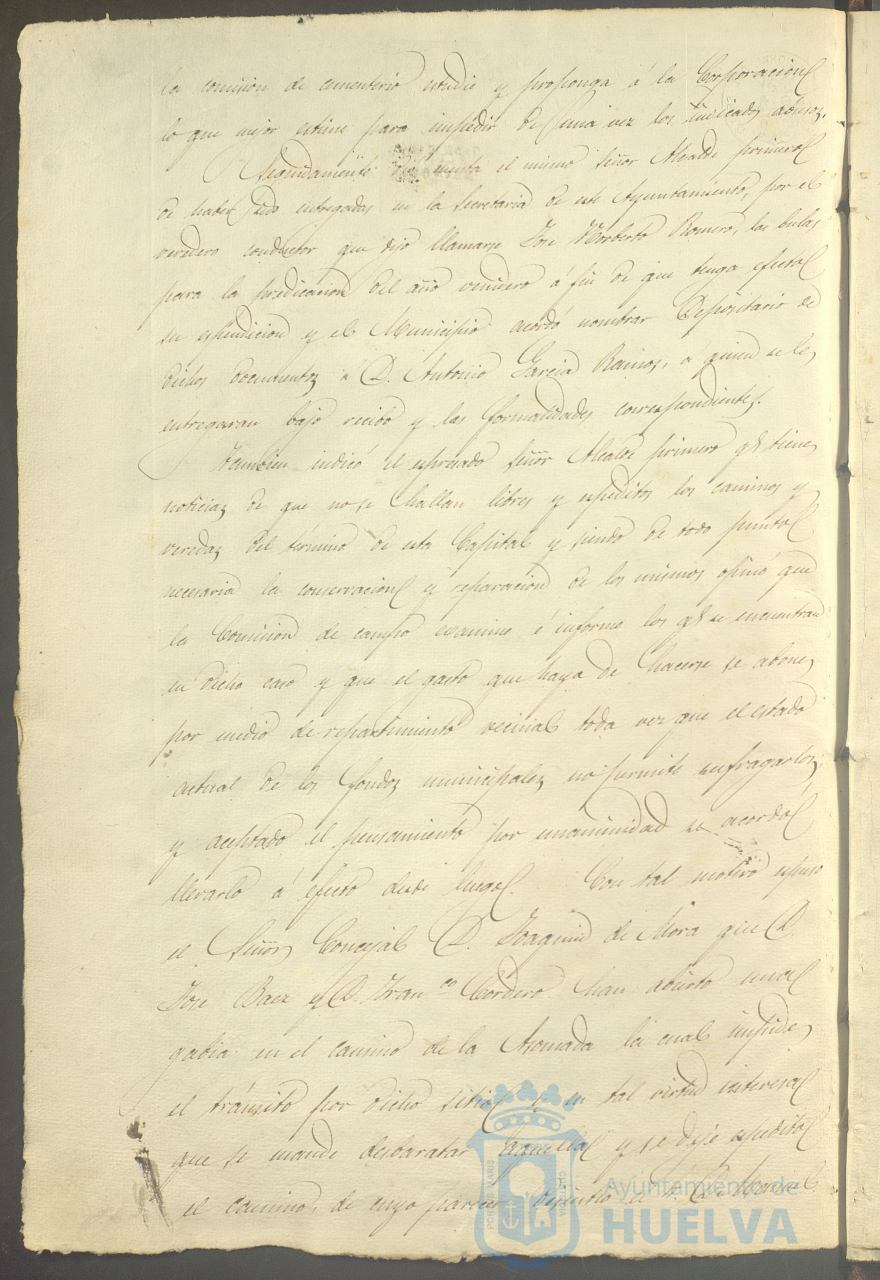 la comision de cementerio estudie y proponga á la Corporacion
lo que mejor estime para impedir de una vez los indicados abusos.
Seguidamente dió cuenta el mismo Señor Alcalde primero
de haber sido entregadas en la Secretaria de este Ayuntamiento, por el
veredero conductor que dijo llamarse José Norberto Romero, las bulas
para la predicacion del año venidero á fin de que tenga efecto
su espendicion y el Municipio acordó nombrar Depositario de
dichos documentos á D. Antonio Garcia Ramos, a quien se le
entregaran bajo recibo y las formalidades correspondientes.
Tambien indicó el espresado Señor Alcalde primero qe tiene
noticias de que no se hallan libres y espeditos los caminos y
veredas del término de esta Capital y siendo de todo punto
necesaria la conservacion y reparacion de los mismos opinó que
la Comision de campo examine é informe los qe se encuentran
en dicho caso y que el gasto que haya de hacerse se abone
por medio de repartimiento vecinal toda vez que el estado
actual de los fondos municipales no permite sufragarlos
y aceptado el pensamiento por unanimidad se acordó
llevarlo á efecto desde luego. Con tal motivo espuso
el Señor Concejal D. Joaquin de Mora que D.
José Baez y D. Franco Cordero han abierto una
gabia en el camino de la Asomada la cual impide
el tránsito por dicho sitio y en tal virtud interesa
que se mande desbaratar aquella y se deje espedito
el camino, de cuyo parecer disintió el Sr. D.
Ayuntamiento de
HUELVA